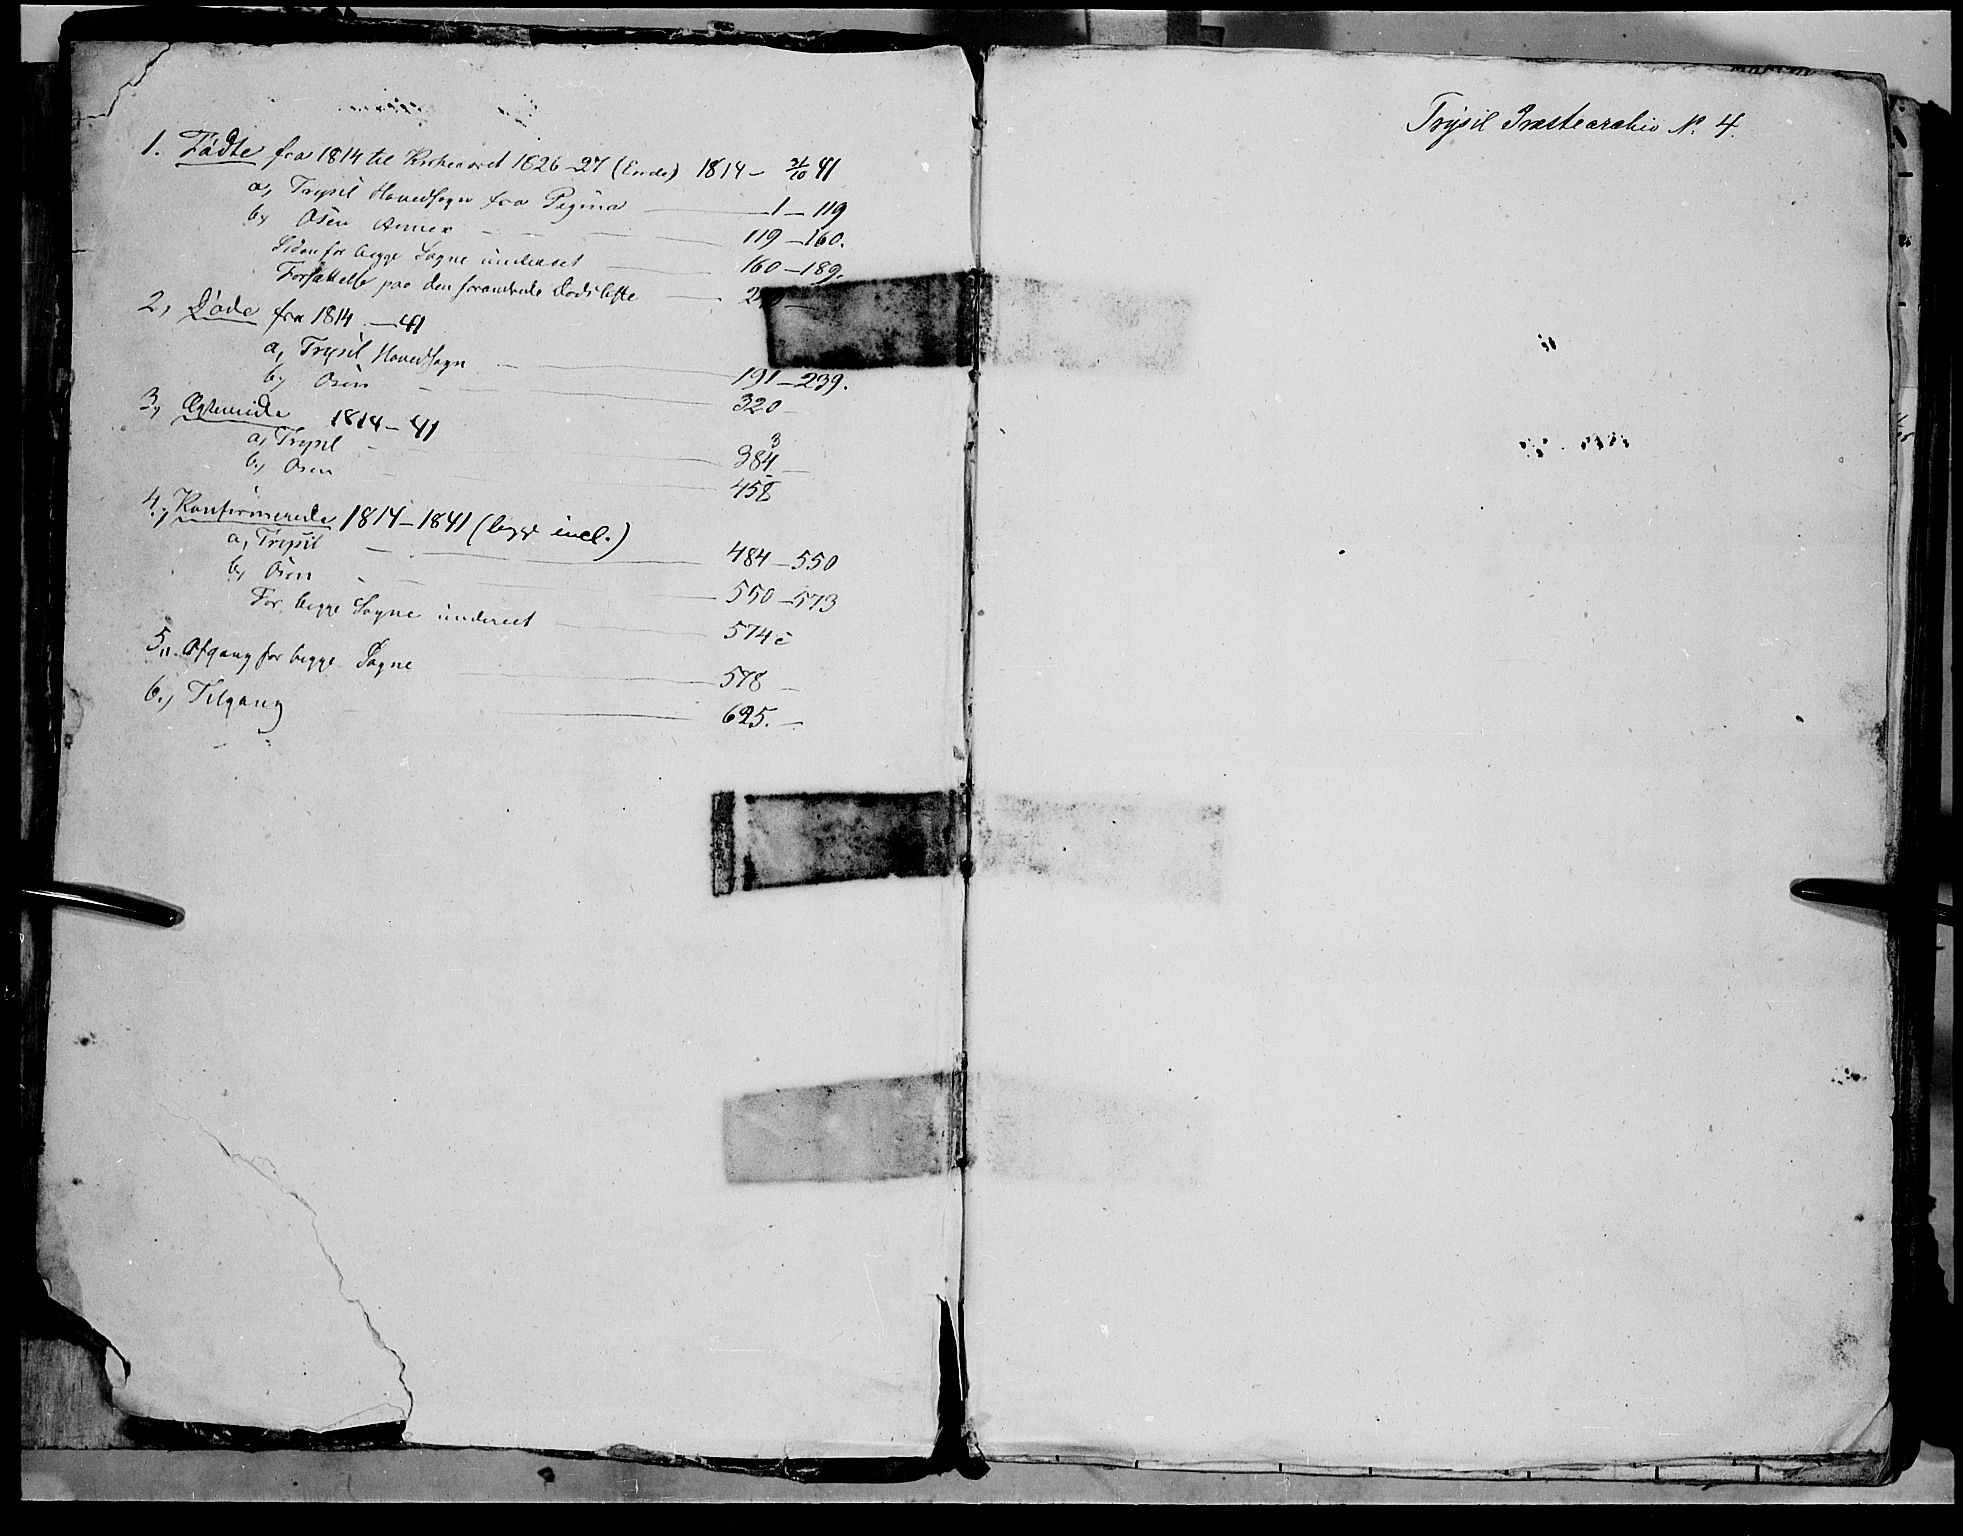 1. Fødte fra 1814 til Kirkeaaret 1826-27 (Ende) 1814 - 31/10 41
a, Trysil Hovedsogn fra Pagina 1-119
b, Osen Annex 119-160.
Siden for begge Sogne underset 160-189.
Forsættelse paa den Dødsliste
2, Døde fra 1814 - 41
a, Trysil Hovedsogn 191-239.
b, Osen 320-
3, Ægteviede 1814-41
a, Trysil 384
b, Osen 458
4., Konfirmerede 1814-1841 (begge incl.)
a, Trysil 484-550
b, Osen 550-573
For begge Sogne undereet 574
5,, Afgang for begge Sogne 578 -
6., Tilgang 625. -
Trysil Præstearchiv No. 4.